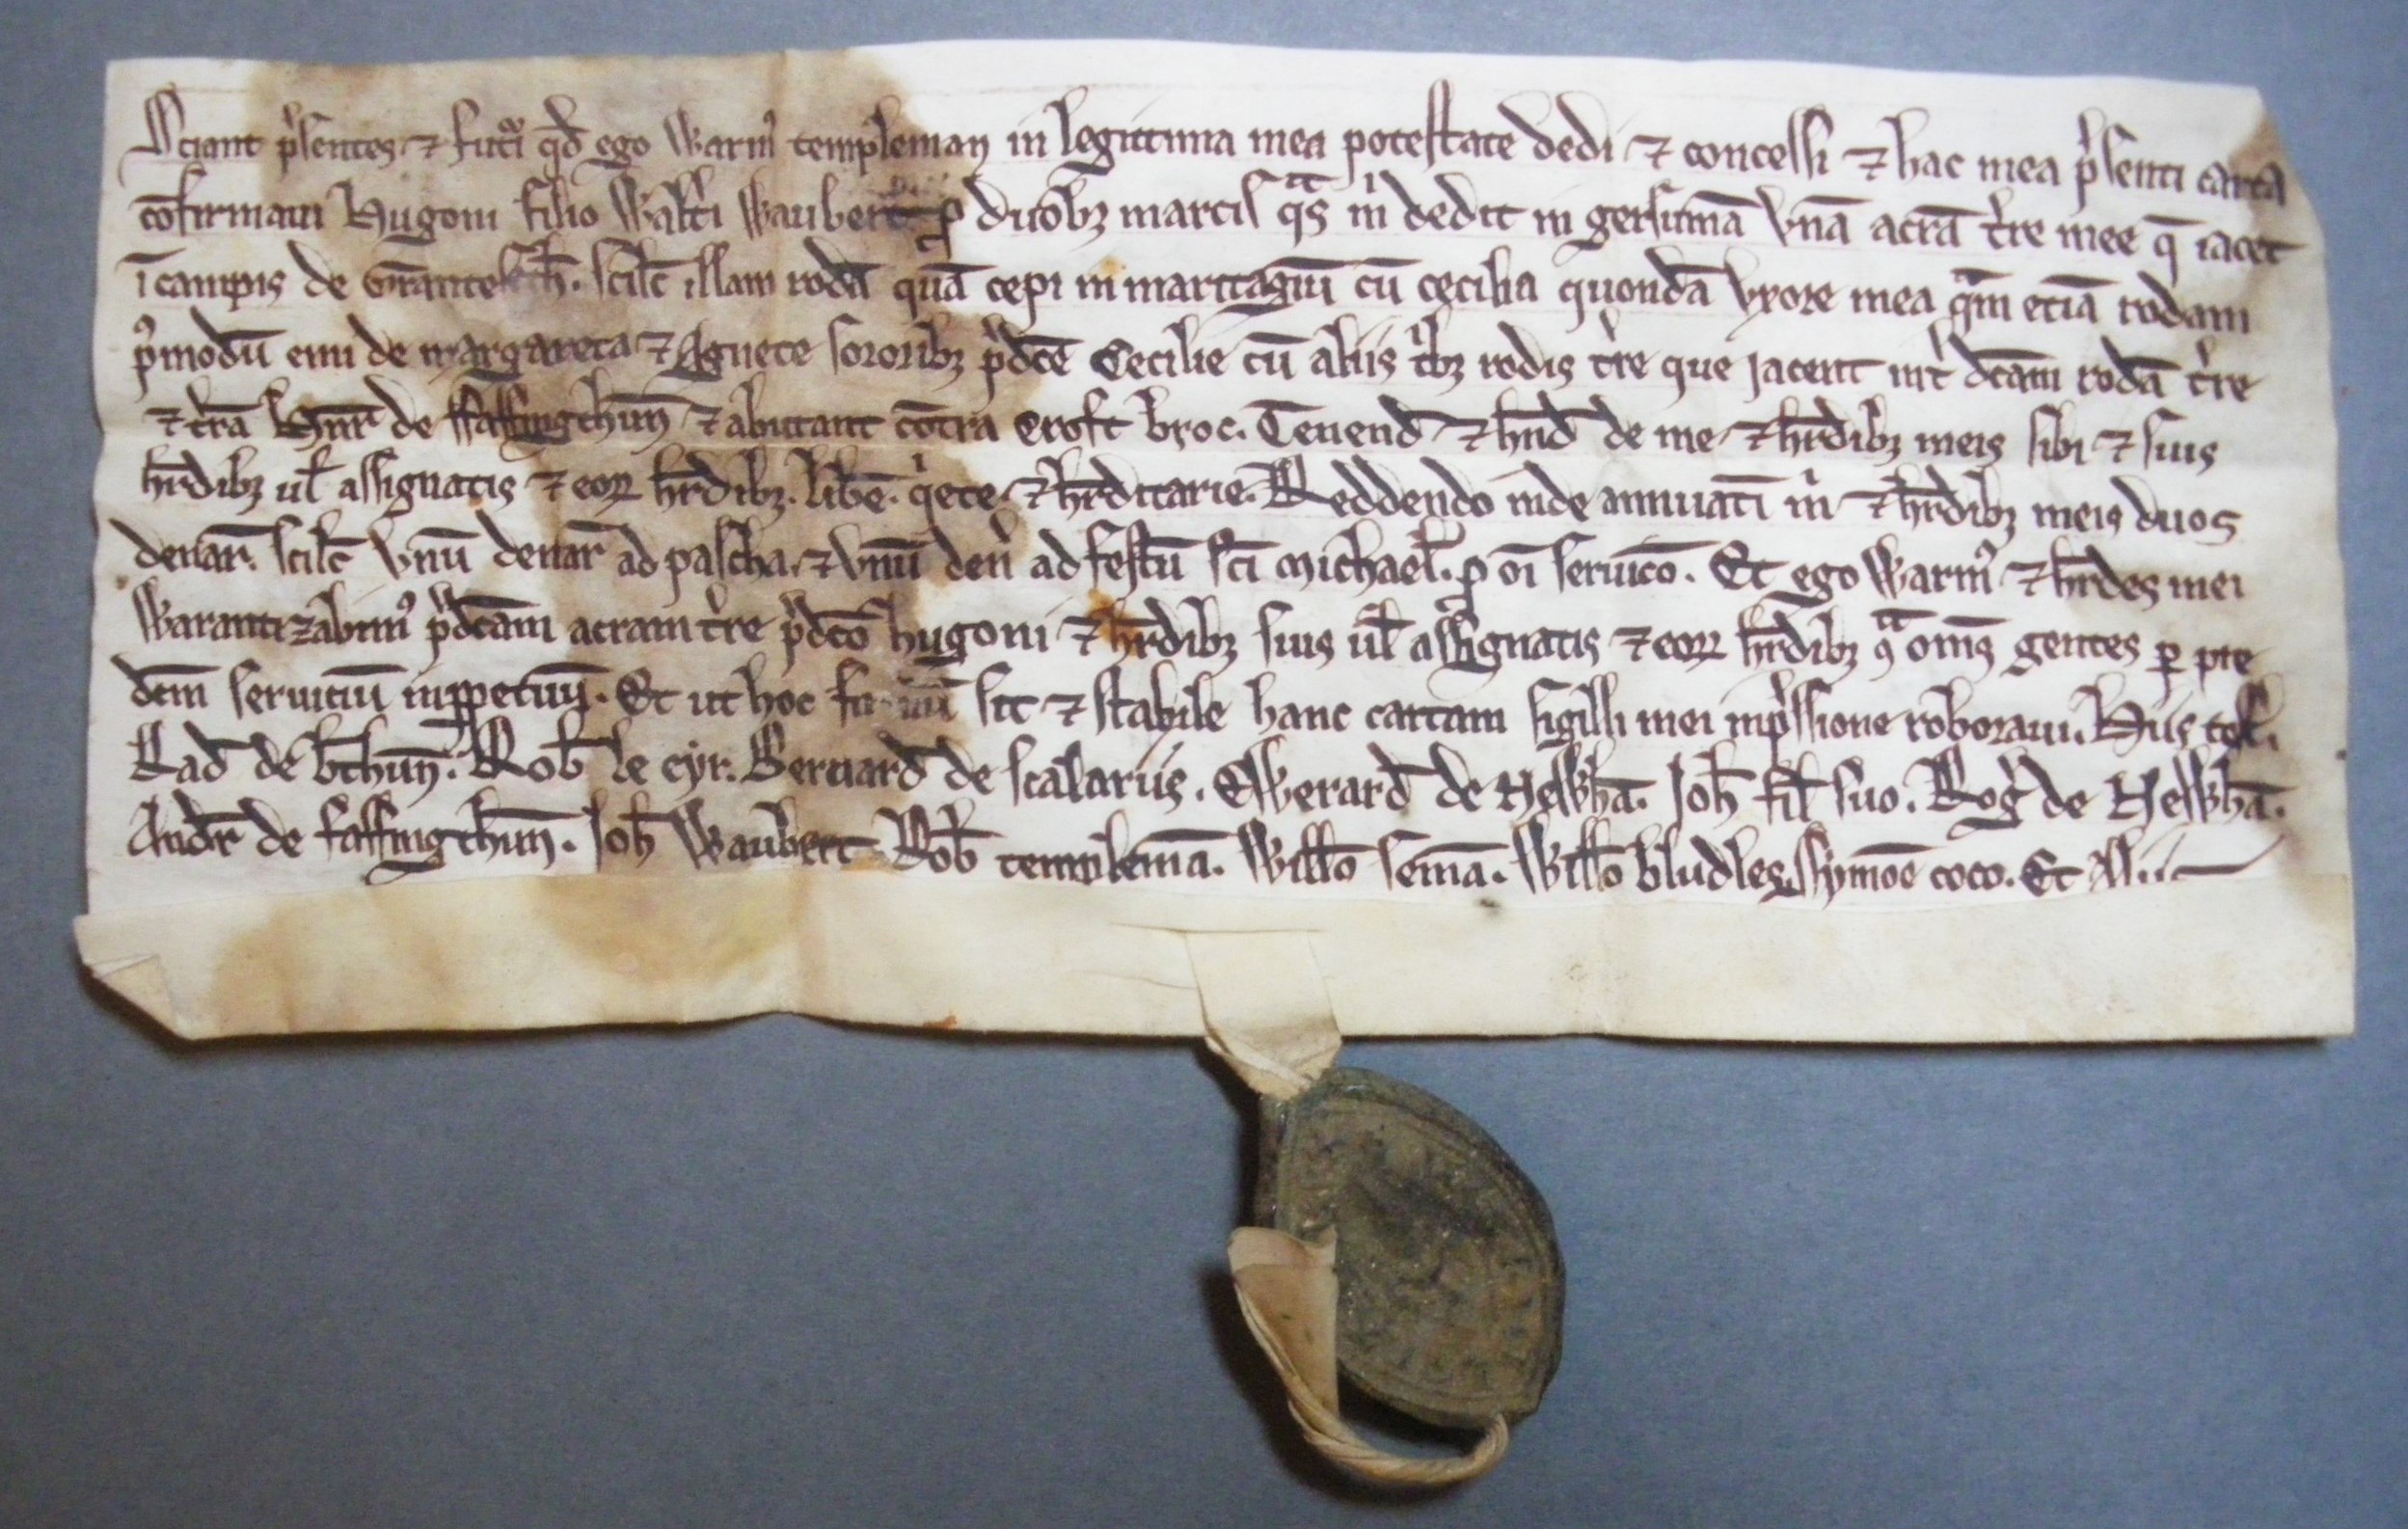 Sciant p'sentes ⁊ futꝰi qd̄ ego Warinꝰ templeman in legittima mea potestate dedi ⁊ concessi ⁊ hac mea p'senti carta
cōfirmaui Hugoni filio Walt'i Waubert p̱ duobꝫ marcis qᵃs m' dedit in gersumā vnā acrā t're mee q̄ iacet
ī campis de scilc̄ illam rodā quā cepi in maritagiū cū cecilia quondā vxore mea qᵃm etiā rodam
pꝰmodū emi de margareta ⁊ Agnete sororibꝫ p'dc̄e Cecilie cū aliis t'bꝫ rodis t're que jacent int' dc̄am rodā t're
⁊ t'rā de ffassingthun̄ ⁊ abutant cōtra Croft broc. Tenend̄ ⁊ hn̄d de me ⁊ hr̄dibꝫ meis sibi ⁊ suis
hr̄dibꝫ ul̄ assignatis ⁊ eoꝝ hr̄dibꝫ. lib'e. q'ete. ⁊ hr̄ditarie. Reddendo inde annuatī m' ⁊ hr̄dibꝫ meis duos
denar̄. scilc̄ vnū denar̄ ad pascha. ⁊ vnū den' ad festū sc̄i Michael̄. p̱ oī seruico. Et ego Warinꝰ ⁊ hr̄des mei
Warantizabimꝰ p'dc̄am acram t're p'dc̄o hugoni ⁊ hr̄dibꝫ suis ul̄ assignatis ⁊ eoꝝ hr̄dibꝫ ꝯᵃ om̄s gentes per pre
dc̄m seruiciū inppetuū. Et ut hoc sit ⁊ stabile hanc cartam sigilli mei inp'ssione roboraui. Hiis test.
Rad̄ de b'thun̄. Rob̄ le eyr. Bernard̄ de scalariis. Ewerard̄ de Hewh̄ā. Joh̄ fil̄ suo. Rog' de Hewh̄ā.
Andr̄ de fassingthun̄. Joh̄ Waubert Rob̄ templemā. Willo̅ semā. Willo̅ bludles. Symōe coco. Et Aliis